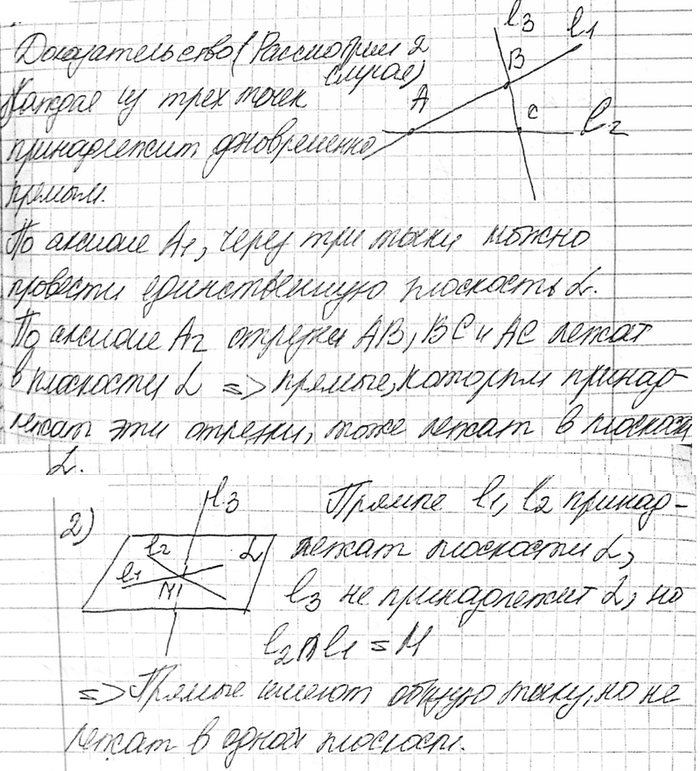 Доказательство (Рассмотрим 2
случая)
Каждая из трех точек
принадлежит одновременно
прямым.
l3 l1
B
A
C
l2
По аксиоме A1, через три точки можно
провести единственную плоскость α.
По аксиоме A2 отрезки AB, BC и AC лежат
в плоскости α => прямые, которым принад-
лежат эти отрезки, тоже лежат в плоскости
α.
2)
l3
l2
α
l1
M
Прямые l1, l2 принад-
лежат плоскости α,
l3 не принадлежит α, но
l2 ∩ l1 = M
=> Прямые имеют общую точку, но не
лежат в одной плоскости.